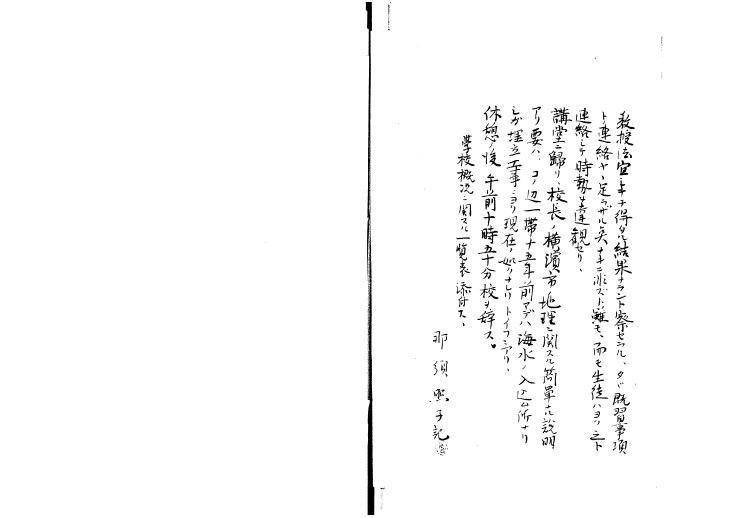 教授法宜シキヲ得タル結果ナラント察セラル、タヾ既習事項
ト連絡ヤヽ足ラザル点ナキニ非ズト雖モ、而モ生徒ハヨク之ト
連絡シテ時勢を達観セリ、
講堂ニ歸リ、校長ノ横濱市地理ニ関スル簡單ナル説明
アリ要ハ、コノ辺一帯ハ十五年前マデハ海水ノ入込ム所ナリ
シガ埋立工事ニヨリ現在ノ如クナレリ トイフニアリ、
休憩ノ後 午前十時五十分校ヲ辞ス。
學校概況ニ関スル一覧表添付ス、
那須 熙子記